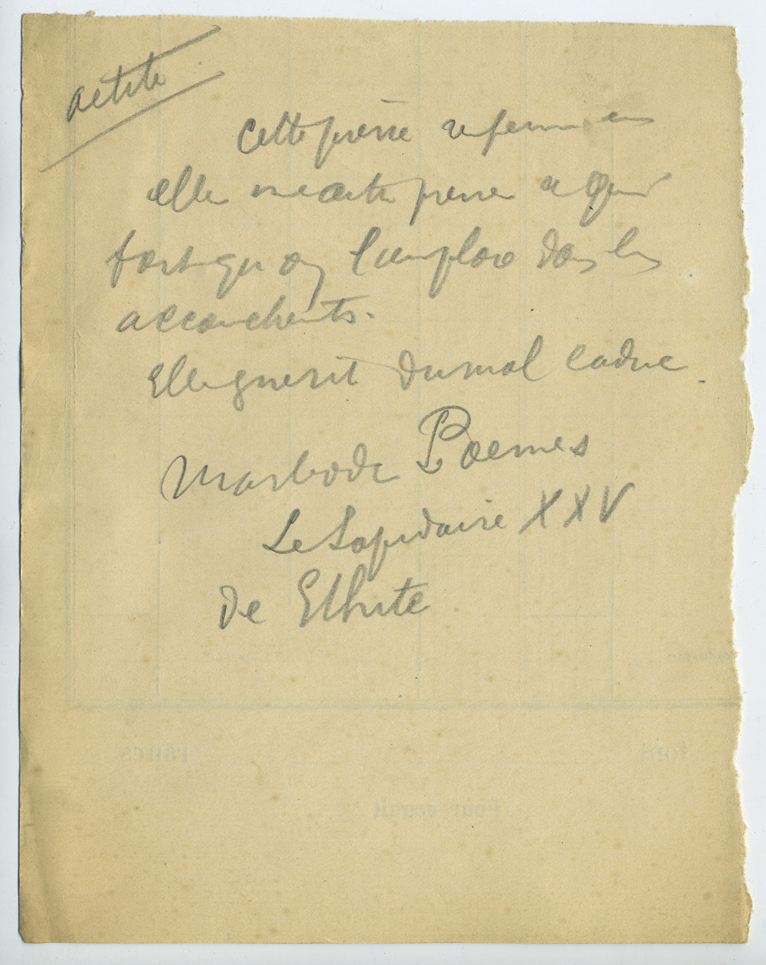 aetite
Cette pierre renferme en
elle une autre pierre
fait qu'on l'emploie dans les
accouchements.
Elle guérit du mal caduc.
Marbode Poemes
Le Lapidaire XXV
De Ethite